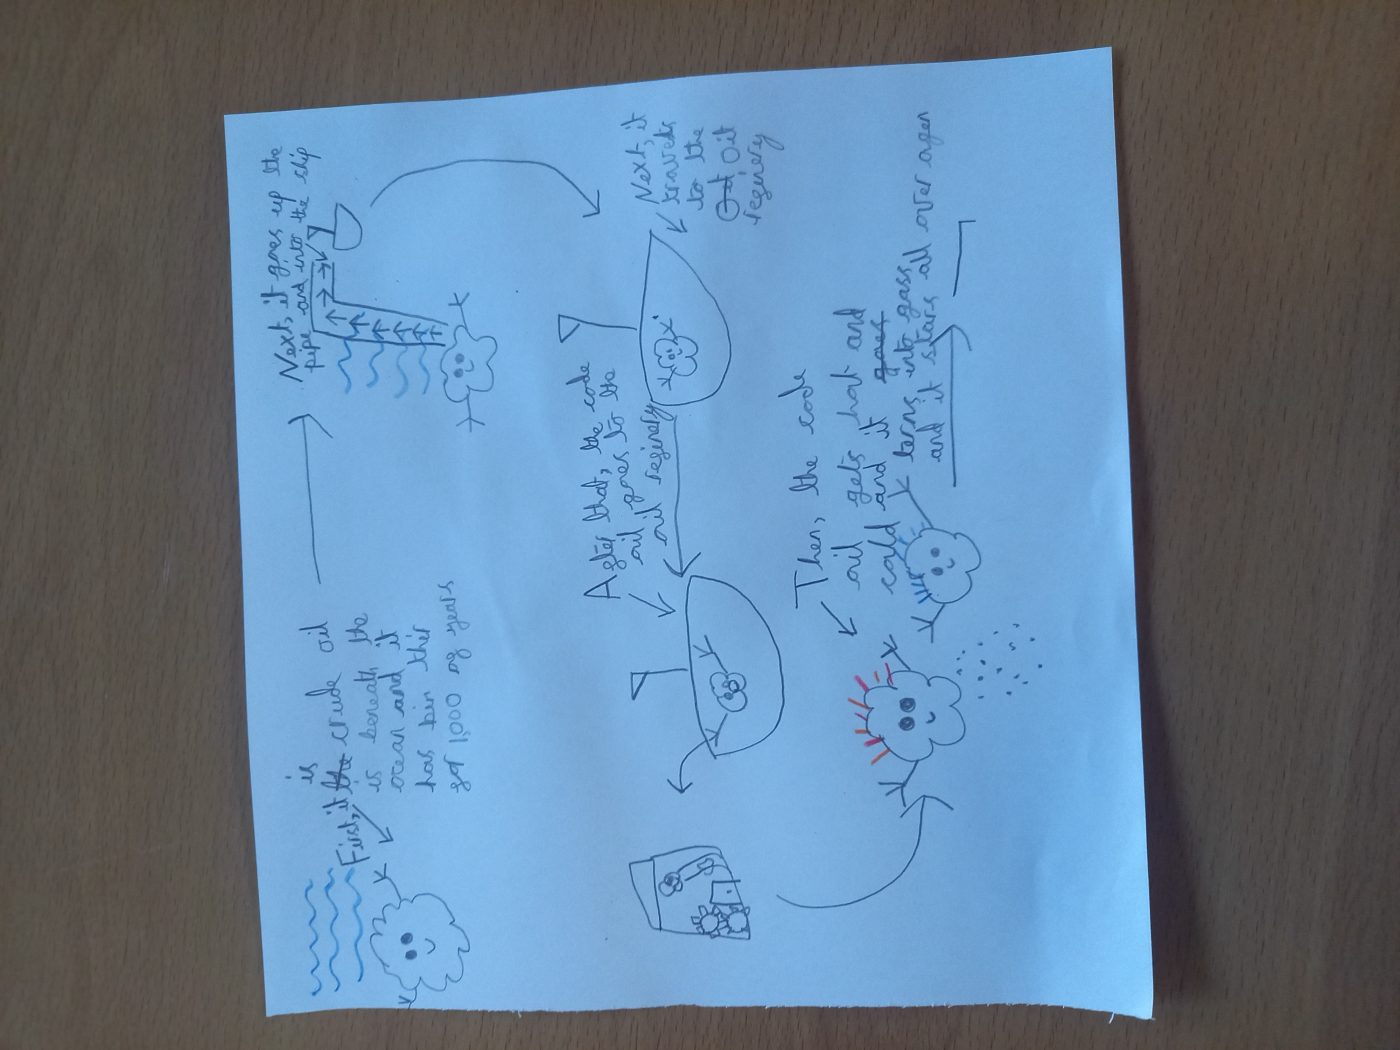 is
First, it the crude oil
is beneath the
ocean and it
has bin thir
for 1,000 of years
Next, it goes up the
pipe and into the ship
Next, it
travels
to the
Oil
refinery
After that, the code
oil goes to the
oil refinery
Then, the code
oil gets hot and
cold and it goes
terns into gass
and it stars all over agen